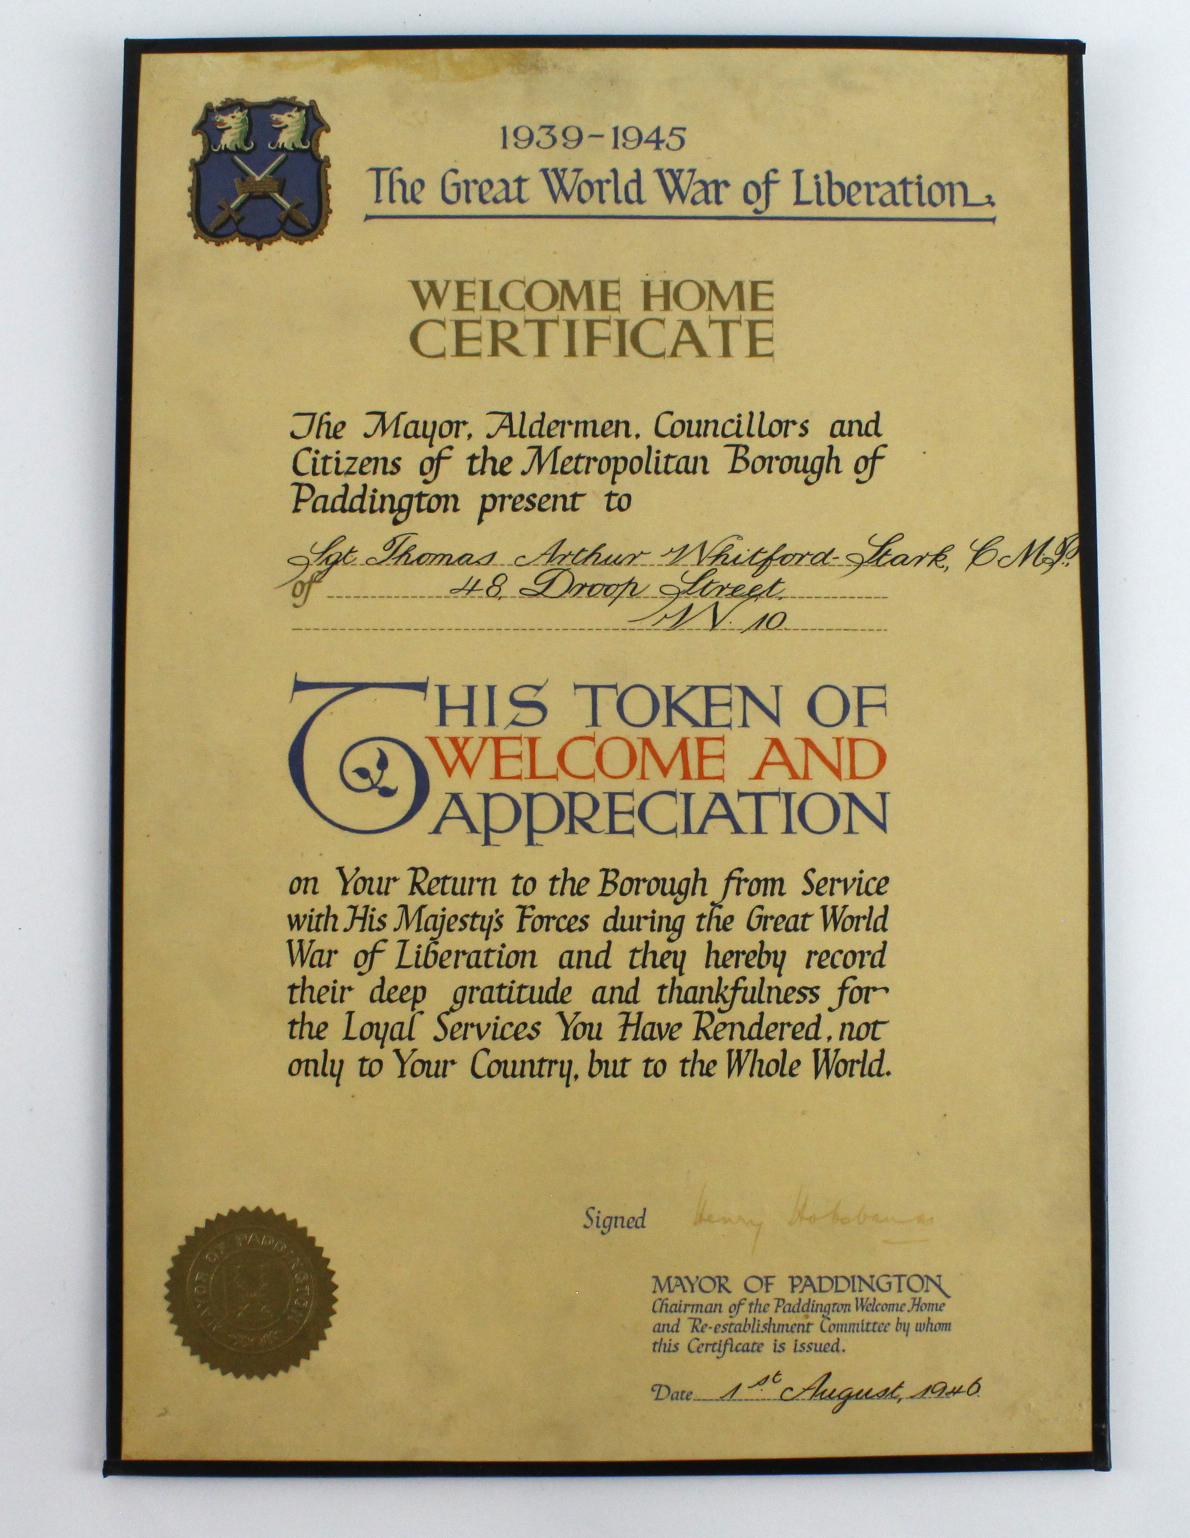 1939-1945
The Great World War of Liberation
WELCOME HOME
CERTIFICATE
The Mayor, Aldermen, Councillors and
Citizens of the Metropolitan Borough of
Paddington present to
Sgt. Thomas Arthur Whitford-Stark, C.M.P.
of 48, Droop Street,
W. 10.
THIS TOKEN OF
WELCOME AND
APPRECIATION
on Your Return to the Borough from Service
with His Majesty's Forces during the Great World
War of Liberation and they hereby record
their deep gratitude and thankfulness for
the Loyal Services You Have Rendered, not
only to Your Country, but to the Whole World.
Signed Henry
MAYOR OF PADDINGTON
Chairman of the Paddington Welcome Home
and Re-establishment Committee by whom
this Certificate is issued.
Date 1st August, 1946
MAYOR OF PADDINGTON